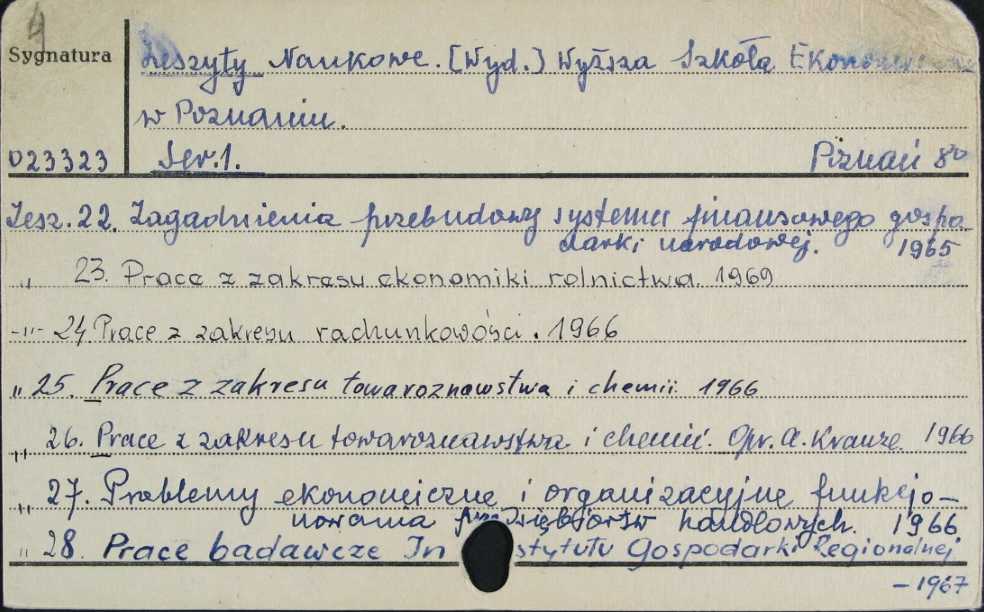 4
Sygnatura
Zeszyty Naukowe. [Wyd.] Wyższa Szkoła
w Poznaniu.
023323 Ser. 1. Poznań 8°
Zesz. 22. Zagadnienia przebudowy systemu finansowego gospo-
darki narodowej. 1965
„ 23. Prace z zakresu ekonomiki rolnictwa. 1969
-„- 24 Prace z zakresu rachunkowości. 1966
„ 25. Prace z zakresu towaroznawstwa i chemii. 1966
„ 26. Prace z zakresu towaroznawstwa i chemii. Opr. A. Krauze. 1966
„ 27. Problemy ekonomiczne i organizacyjne funkcjo-
nowania przedsiębiorstw handlowych. 1966
„ 28. Prace badawcze In stytutu Gospodarki Regionalnej
- 1967